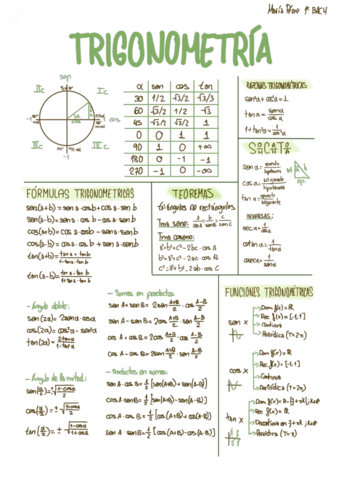 María Pérez 1º BACH
TRIGONOMETRÍA
sen
IIc
Ic
cos
IIIc
IVc
α sen cos tan
30 1/2 √3/2 √3/3
60 √3/2 1/2 √3
45 √2/2 √2/2 1
0 0 1 1
90 1 0 +∞
180 0 -1 -1
270 -1 0 -∞
sen²α + cos²α = 1
tan α = senα/cosα
1 + tan²α = 1/cos²α
sen α =
cos α =
tan α =
INVERSAS:
sec α = 1/cosα
cotan α = 1/tanα
cosec α = 1/senα
FÓRMULAS TRIGONOMÉTRICAS
sen(a+b) = sen a · cos b + cos a · sen b
sen(a-b) = sen a · cos b - cos a · sen b
cos(a+b) = cos a · cos b - sen a · sen b
cos(a-b) = cos a · cos b + sen a · sen b
tan(a+b) = tan a + tan b / 1 - tan a · tan b
tan(a-b) = tan a - tan b / 1 + tan a · tan b
TEOREMAS
triángulos no rectángulos
Tma seno: a/sen A = b/sen B = c/sen C
Tma coseno:
a² = b² + c² - 2bc · cos A
b² = a² + c² - 2ac · cos B
c² = a² + b² - 2ab · cos C
- Ángulo doble:
sen(2a) = 2sen a · cos a
cos(2a) = cos²a - sen²a
tan(2a) = 2tan a / 1 - tan²a
- Ángulo de la mitad:
sen(a/2) = ± √1-cosa/2
cos(a/2) = ± √1+cosa/2
tan(a/2) = ± √1-cosa/1+cosa
- Sumas en productos
sen A + sen B = 2sen A+B/2 · cos A-B/2
sen A - sen B = 2cos A+B/2 · sen A-B/2
cos A + cos B = 2cos A+B/2 · cos A-B/2
cos A - cos B = -2sen A+B/2 · sen A-B/2
- Productos en sumas:
sen A · cos B = 1/2 [sen(A+B) + sen(A-B)]
cos A · sen B = 1/2 [sen(A+B) - sen(A-B)]
cos A · cos B = 1/2 [cos(A+B) + cos(A-B)]
sen A · sen B = 1/2 [cos(A+B) - cos(A-B)]
FUNCIONES TRIGONOMÉTRICAS
sen x
Dom f(x) = ℝ
Rec f(x) = [-1, 1]
Continua
Periódica (T = 2π)
cos x
Dom f(x) = ℝ
Rec f(x) = [-1, 1]
Continua
Periódica (T = 2π)
tan x
Rec f(x) = ℝ
Periódica (T = π)